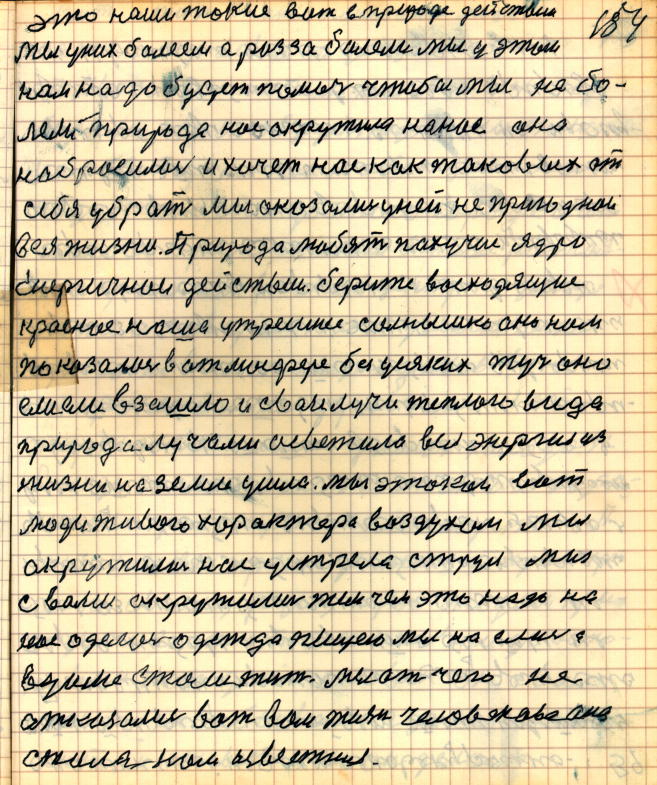 184
это наши такие вот в природе действия
мы у них болеем а разза болели мы у этом
нам надо будет помоч чтобы мы не бо-
лели природа нас окружила на нас она
набросилас и хочет нас как таковых от
себя убрат мы оказалис у ней не пригодной
вся жизни. Природа любят пахучие ядро
енергичной действии. берите восходящие
красное наша утрешние солнышко оно нам
показалос в отмосфере без усяких туч оно
взашло и сваи лучи теплого вида
природа лучами осветила вся энергия из
жизни на земли ушла. мы этакои вот
люди живого характера воздухом мы
окружили нас устрела струя мы
с вами окружилис тем чем это надо на
нас оделос одежда пищею мы на
стали жит. мы от чего не
отказалис вот вам жизн человекова она
стала нам извесная.